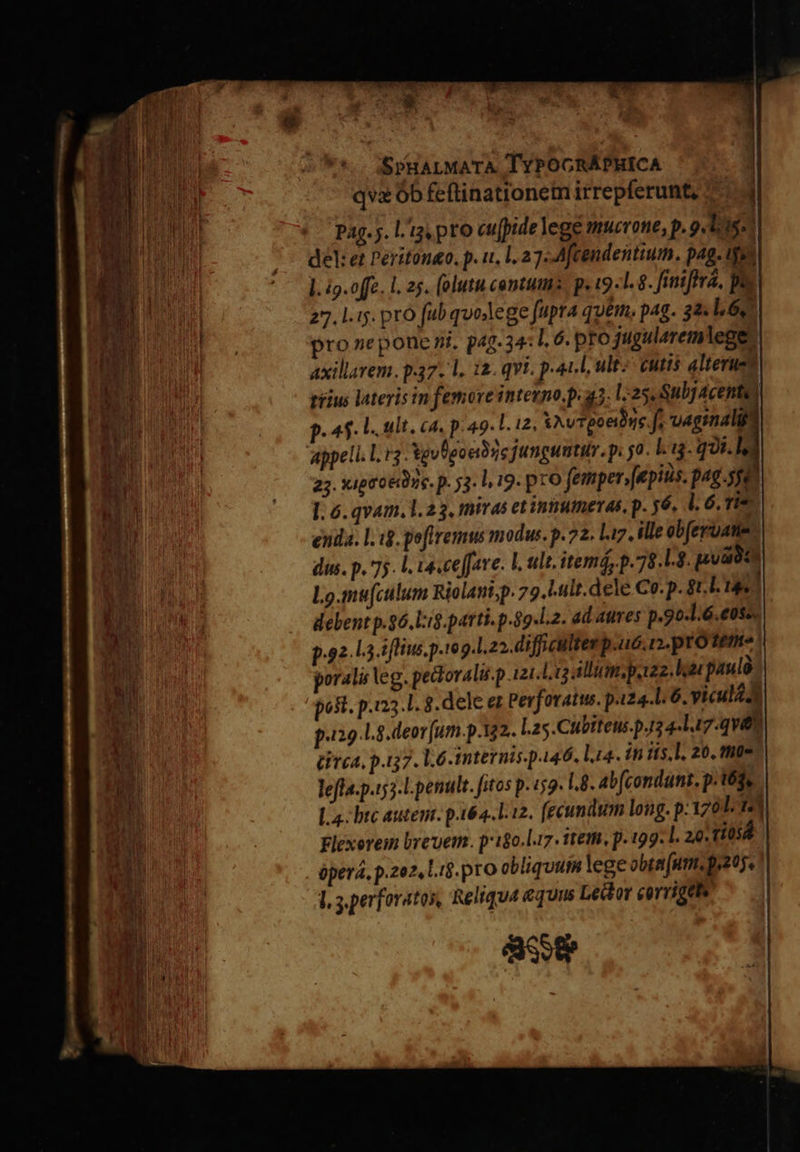 SPHALMATA TYPOGRAPHICA
qvæ ob feſtinationem irrepſerunt,
Pag. 5. l. 13. pro cuſpide lege mucrone, p. 9.
del: et Peritonæo. p. 11. l. 27. Aſcendentium. pag.
l. 19. oſſe. l. 25. ſolutu contum: p. 19. l. 8. ſiniſtrâ.
27. l. 15. pro ſub quo, lege ſupra quem, pag. 32. l. 6.
pro nepone ni. pag. 34: l. 6. pro jugularem lege
axillarem. p. 37. l. 12. qvi. p. 41. l. ult. cutis alteru-
trius lateris in femore interno. p. 43. l. 25. Subjacente
p. 45. l. ult. ca. p. 49. l. 12. ἐλυτροειδὴς ſ. vaginalis
appell. l. 13. ἐρυθροειδὴς junguntur. p. 50. l. 13. qvi.
23. κιρσοειδὴς. p. 53. l. 19. pro ſemper, ſæpiùs. pag.
l. 6. qvam. l. 23. miras et innumeras. p. 56. l. 6.
enda. l. 18. poſtremus modus. p. 72. l. 17. ille obſervan-
dus. p. 75. l. 14. ceſſare. l. ult. itemq́. p. 78. l. 8.
l. 9. muſculum Riolani, p. 79. l. ult. dele Co. p. 81. l.
debent p. 86. l. 18. parti. p. 89. l. 2. ad aures p. 90. l. 6. eos.
p. 92. l. 3. iſtius. p. 109. l. 22. difficulter p. 116. 12. pro tem-
poralis leg. pectoralis. p. 121. l. 13 illum, p. 122. l. 21 paulò
poſt. p. 123. l. 8. dele et Perforatus. p. 124. l. 6.
p. 129. l. 8. deorſum. p. 132. l. 25. Cubiteus. p. 134. l. 17. qvæ
circa, p. 137. l. 6. internis. p. 146. l. 14. in iis. l. 20. mo-
leſta. p. 153. l. penult. ſitos p. 159. l. 8. abſcondunt. p. 163.
l. 4. hic autem. p. 164. l. 12. ſecundum long. p. 170 l.
Flexorem brevem. p. 180. l. 17. item, p. 199. l. 20.
operâ, p. 202, l. 18. pro obliquum lege obtuſum, p. 205.
l. 3. perforatos, Reliqua æquus Lector corriget.